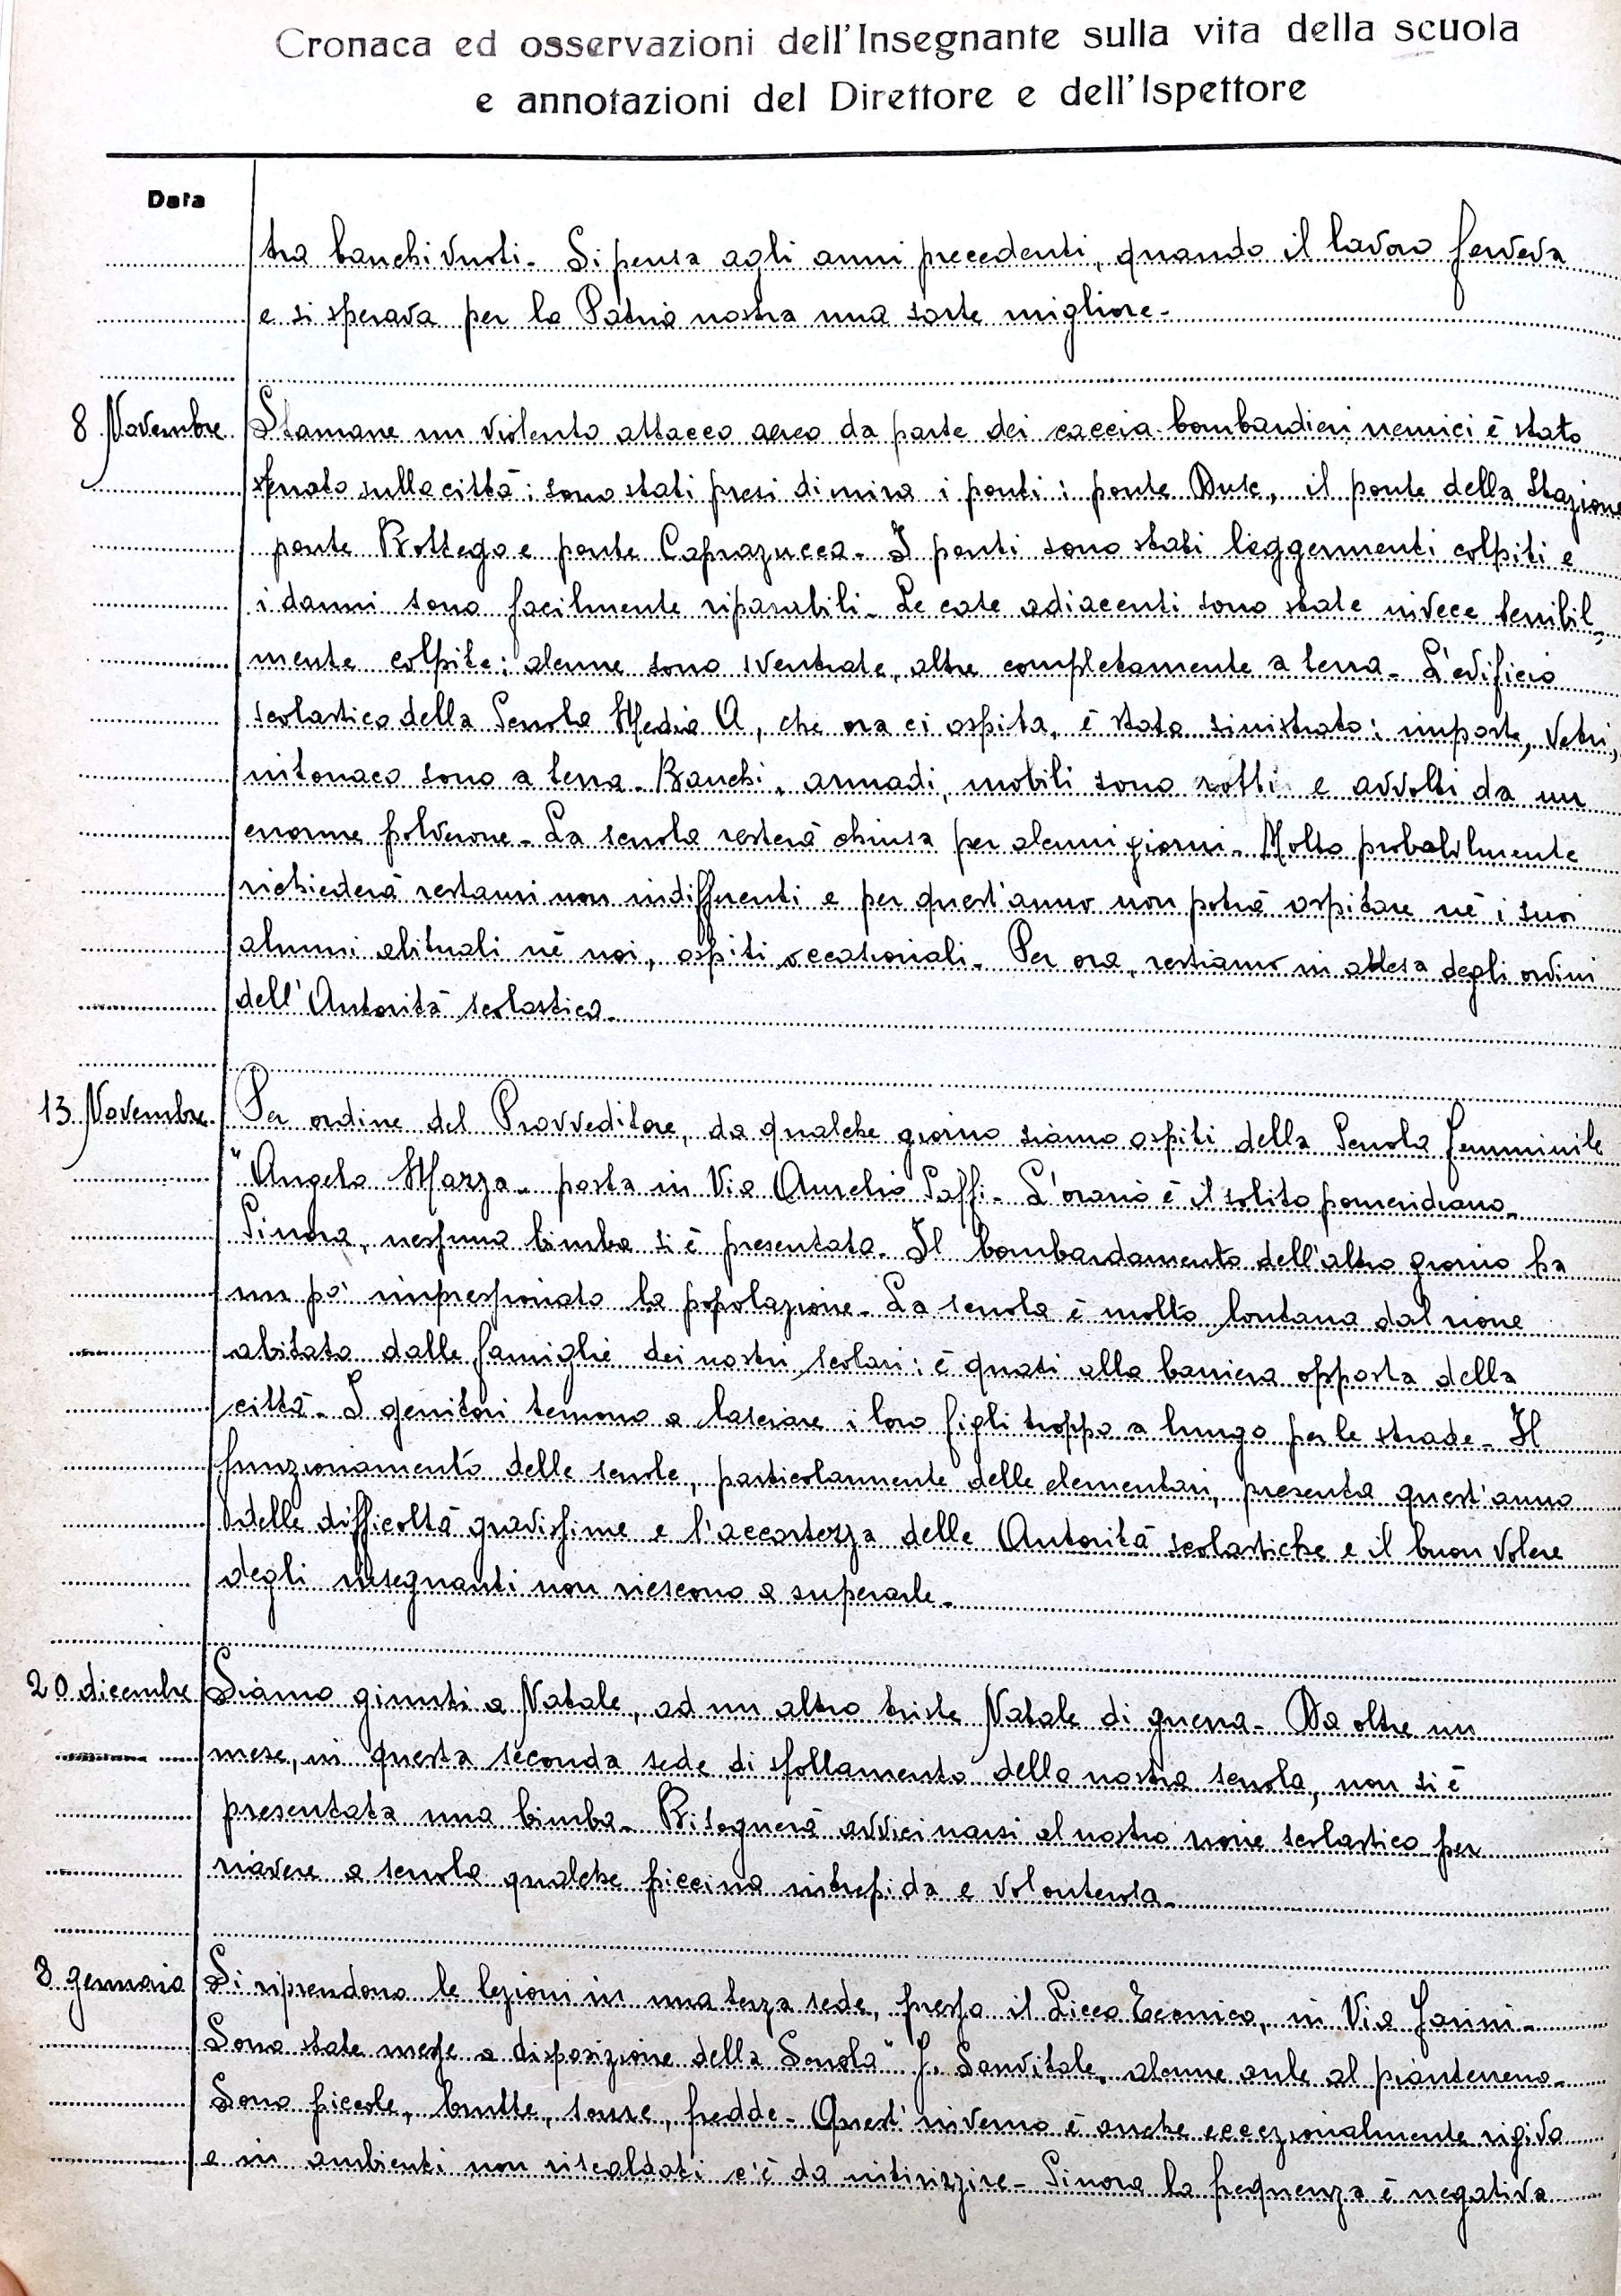 Cronaca ed osservazioni dell'Insegnante sulla vita della scuola
e annotazioni del Direttore e dell'Ispettore
Data
tra banchi vuoti. Si pensa agli anni precedenti, quando il lavoro ferveva
e si sperava per la Patria nostra una sorte migliore.
8 Novembre Stamane un violento attacco aereo da parte dei caccia-bombardieri nemici è stato
sferrato sulla città: sono stati presi di mira i ponti: ponte Dux, il ponte della Stazione
ponte Bottego e ponte Caprazucca. I ponti sono stati leggermenti colpiti e
i danni sono facilmente riparabili. Le case adiacenti sono state invece terribil-
mente colpite: alcune sono sventrate, altre completamente a terra. L'edificio
scolastico della Scuola Media A, che ora ci ospita, è stato sinistrato: imposte, vetri,
intonaco sono a terra. Banchi, armadi, mobili sono rotti e avvolti da un
enorme polverone. La scuola resterà chiusa per alcuni giorni. Molto probabilmente
richiederà restauri non indifferenti e per quest'anno non potrà ospitare nè i suoi
alunni abituali nè noi, ospiti occasionali. Per ora, restiamo in attesa degli ordini
dell'Autorità scolastica.
13 Novembre Per ordine del Provveditore, da qualche giorno siamo ospiti della Scuola femminile
"Angelo Mazza" posta in Via Aurelio Saffi. L'orario è il solito pomeridiano.
Sinora, nessuna bimba si è presentata. Il bombardamento dell'altro giorno ha
un po' impressionato la popolazione. La scuola è molto lontana dal rione
abitato dalle famiglie dei nostri scolari: è quasi alla barriera opposta della
città. I genitori temono a lasciare i loro figli troppo a lungo per le strade. Il
funzionamento delle scuole, particolarmente delle elementari, presenta quest'anno
delle difficoltà gravissime e l'accortezza delle Autorità scolastiche e il buon volere
degli insegnanti non riescono a superarle.
20 dicembre Siamo giunti a Natale, ad un altro triste Natale di guerra. Da oltre un
mese, in questa seconda sede di sfollamento della nostra scuola, non si è
presentata una bimba. Bisognerà avvicinarsi al nostro rione scolastico per
riavere a scuola qualche piccina intrepida e volonterosa.
8 gennaio Si riprendono le lezioni in una terza sede, presso il Liceo Tecnico, in Via Farini.
Sono state messe a disposizione della Scuola "J. Sanvitale" alcune aule al pianterreno.
Sono piccole, brutte, scure, fredde. Quest'inverno è anche eccezionalmente rigido
e in ambienti non riscaldati c'è da intirizzire. Sinora la frequenza è negativa